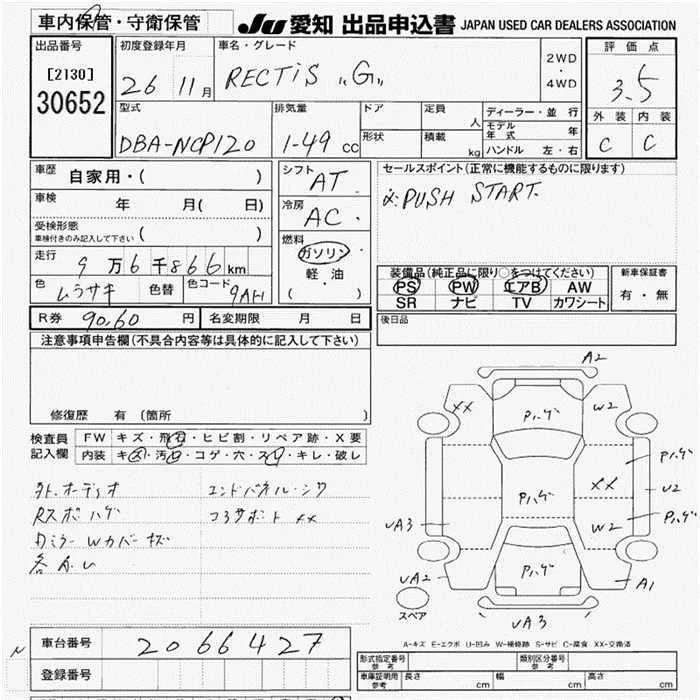 車内保管・守衛保管
JU 愛知 出品申込書 JAPAN USED CAR DEALERS ASSOCIATION
出品番号 初度登録年月 車名・グレード 評価点
[2130]
30652
26 11月 RECTiS "G" 2WD ・ 4WD 3.5
型式 排気量 ドア 定員 人 ディーラー・並行 外装 内装
DBA-NCP120 1-49 cc 形状 積載 kg モデル年式 年 C C
ハンドル 左・右
車歴 自家用・( )
シフト AT
セールスポイント(正常に機能するものに限ります)
PUSH START.
車検 年 月( 日)
冷房 AC
受検形態 車検付きのみ記入して下さい ( )
燃料 ガソリン 軽・油 ( )
走行 9万6千866km
装備品(純正品に限り○をつけてください) 新車保証書
色 ムラサキ 色替 色コード 9AH
PS PW エアB AW 有・無
SR ナビ TV カワシート
R券 90,60 円 名変期限 月 日
後日品
注意事項申告欄(不具合内容等は具体的に記入して下さい)
修復歴 有 〔箇所 〕
検査員記入欄 FW キズ・飛石・ヒビ割・リペア跡・X要
内装 キズ・汚れ・コゲ・穴・スレ・キレ・破レ
外.オーディオ エンドパネル・シワ
Rスポハゲ コアサポート XX
Dミラー Wカバーキズ
A2
XX Pハゲ W2
Pハゲ
Pハゲ XX U2
UA3 W2 Pハゲ
UA2 Pハゲ A1
スペア
UA3
A-キズ E-エクボ U-凹み W-補修跡 S-サビ C-腐食 XX-交換済
車台番号 2066427
N
登録番号
形式指定番号 参考 類別区分番号 参考
車庫証明用 参考 長さ cm 幅 cm 高さ cm